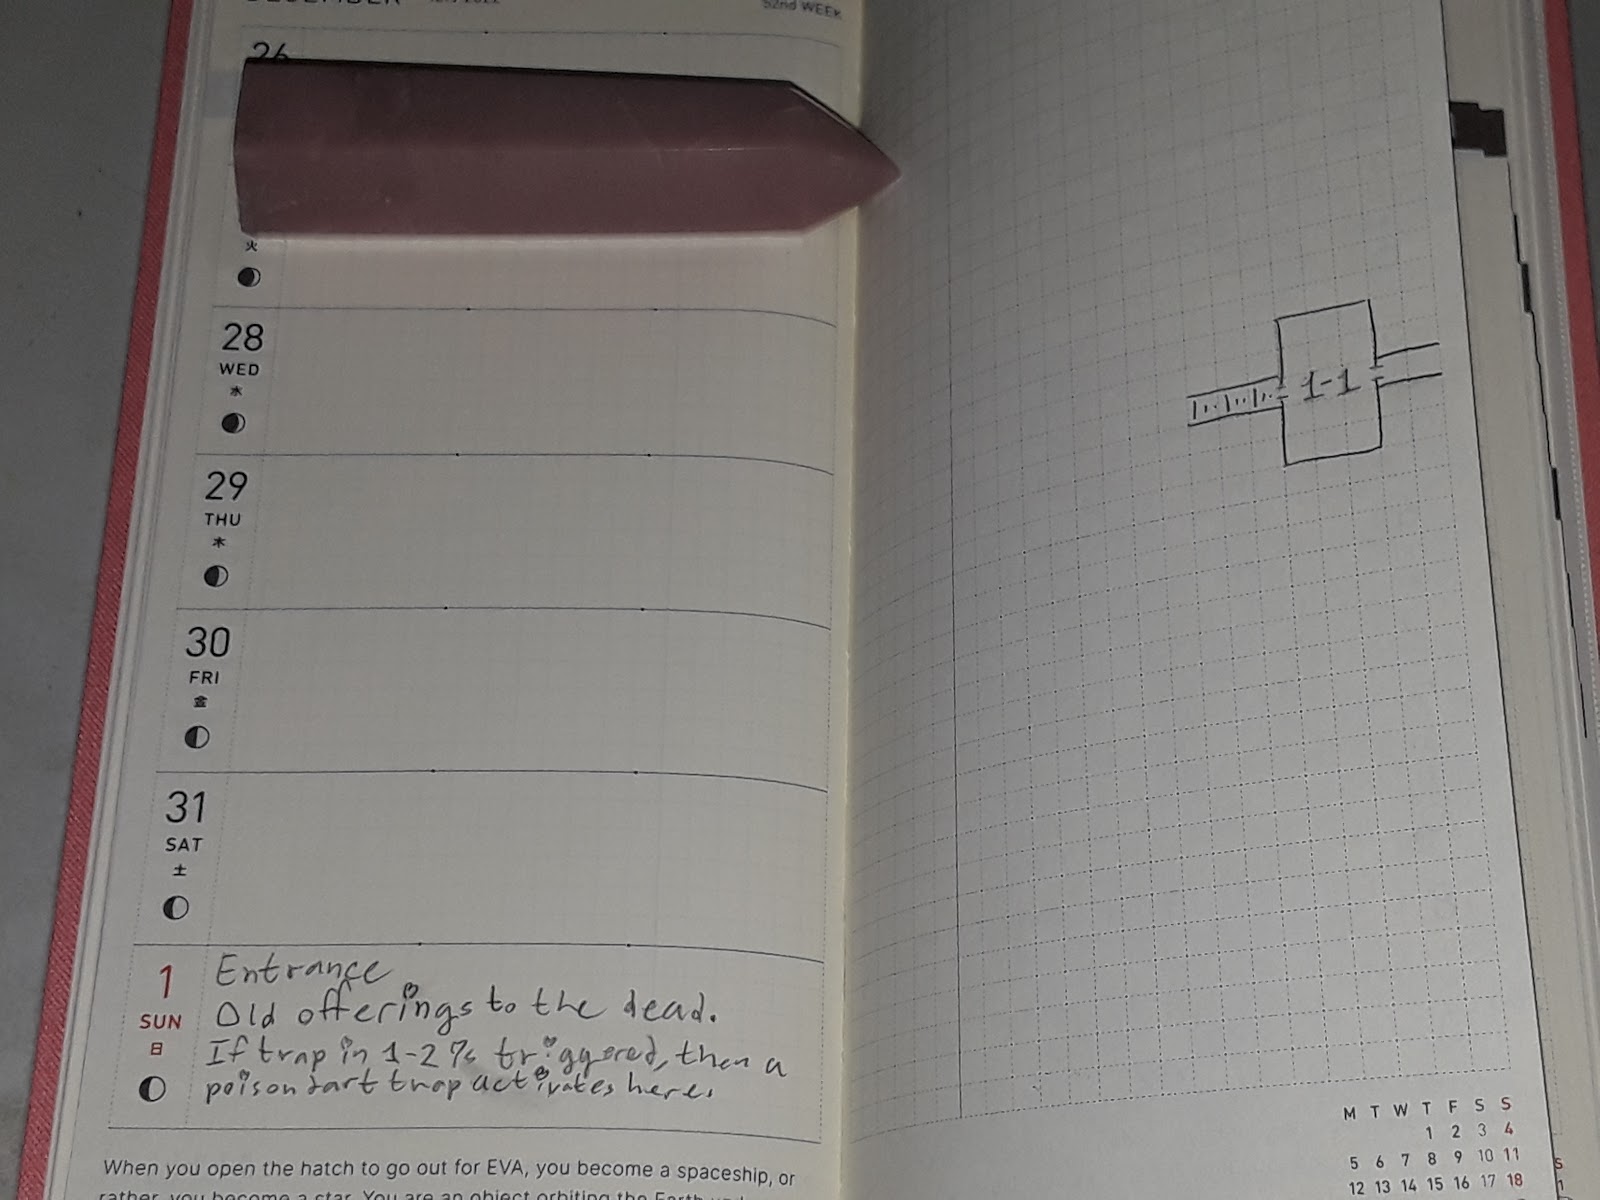 DECEMBER
52nd WEEK
26
火
28
WED
水
29
THU
木
30
FRI
金
31
SAT
土
1
SUN
日
Entrance
Old offerings to the dead.
If trap in 1-2 is triggered, then a
poison dart trap activates here.
When you open the hatch to go out for EVA, you become a spaceship, or
rather, you become a star. You are an object orbiting the Earth
1-1
M T W T F S S
1 2 3 4
5 6 7 8 9 10 11
12 13 14 15 16 17 18
S
1